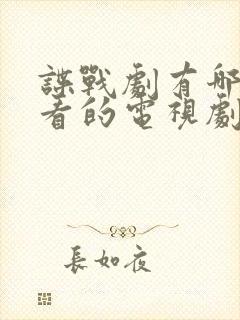 諜戰劇有哪
看的電視劇
長如夜